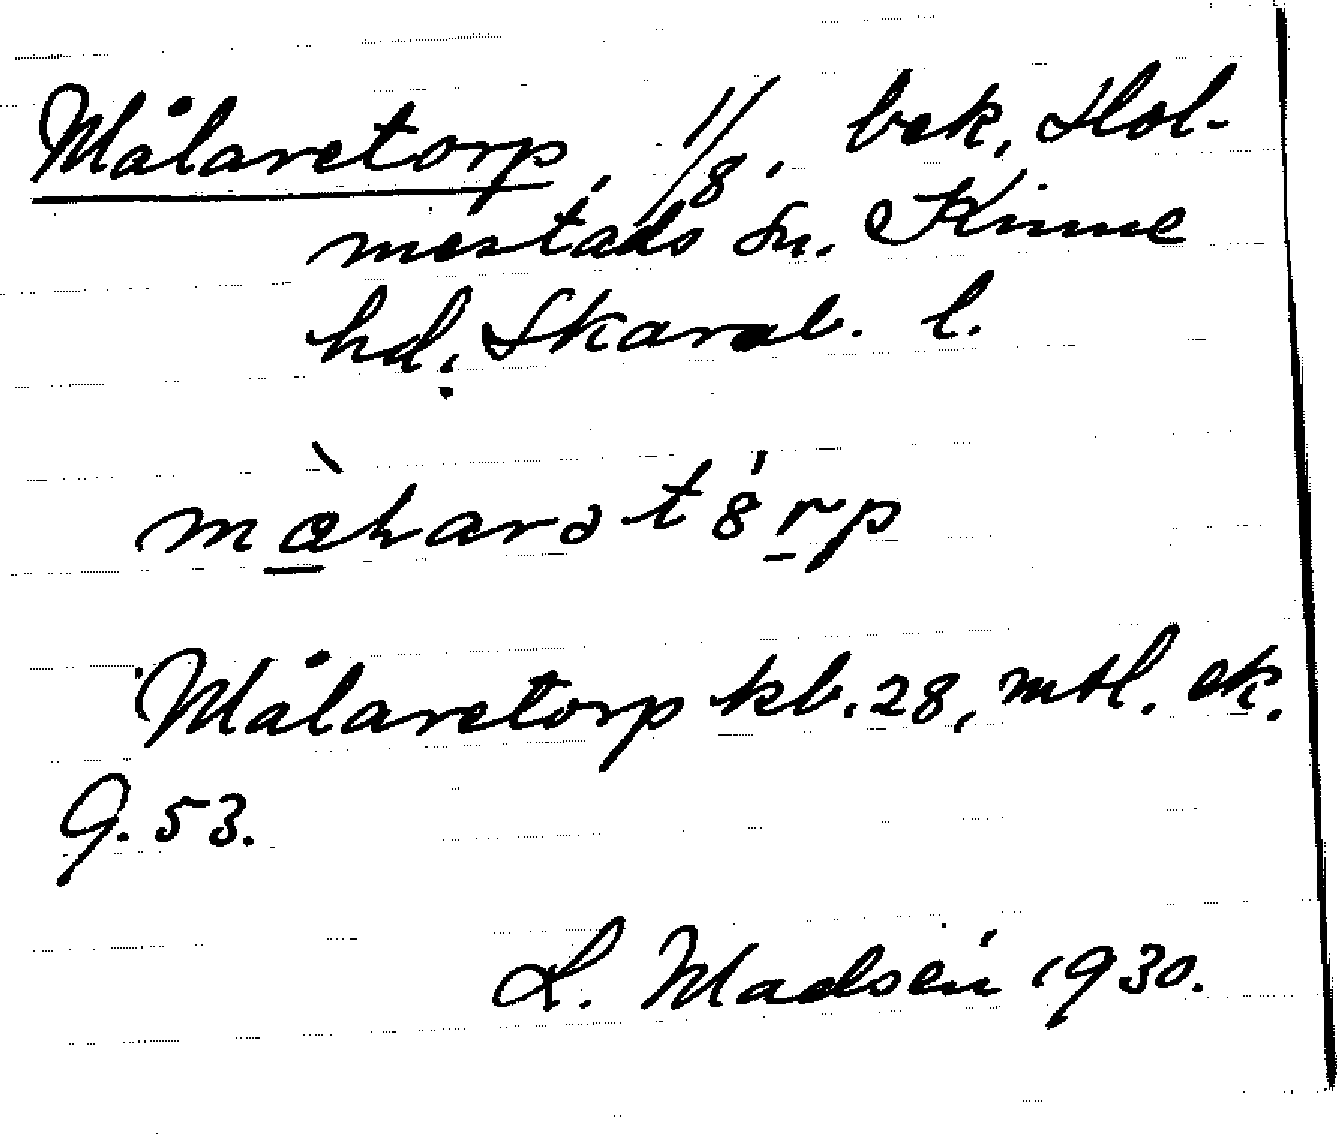 Målaretorp, 1/8, bek, Hol-
mestads sn. Kinne
hd. Skarab. l.
Målaretorp kb. 28, mtl. ek.
G. 53.
L. Madsén 1930.